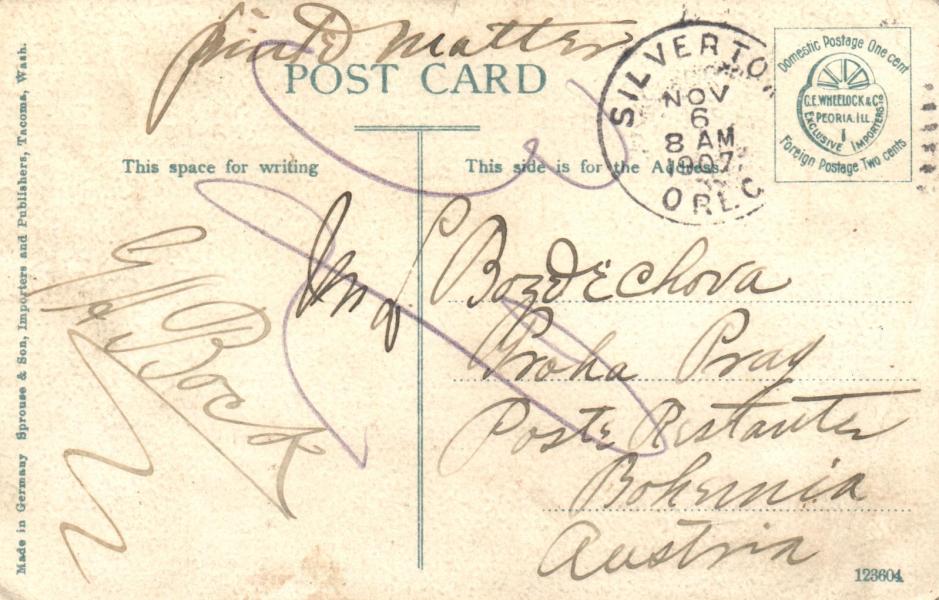 Made in Germany Sprouse & Son, Importers and Publishers, Tacoma, Wash.
Matter
POST CARD
This space for writing
This side is for the Address.
SILVERTON
NOV
6
8 AM
1907
OREG
Domestic Postage One cent
C.E. WHEELOCK & Co
PEORIA. ILL.
EXCLUSIVE IMPORTERS
Foreign Postage Two cents
Bock
L Bozdechova
Praha Prag
Poste Restante
Bohemia
Austria
123604